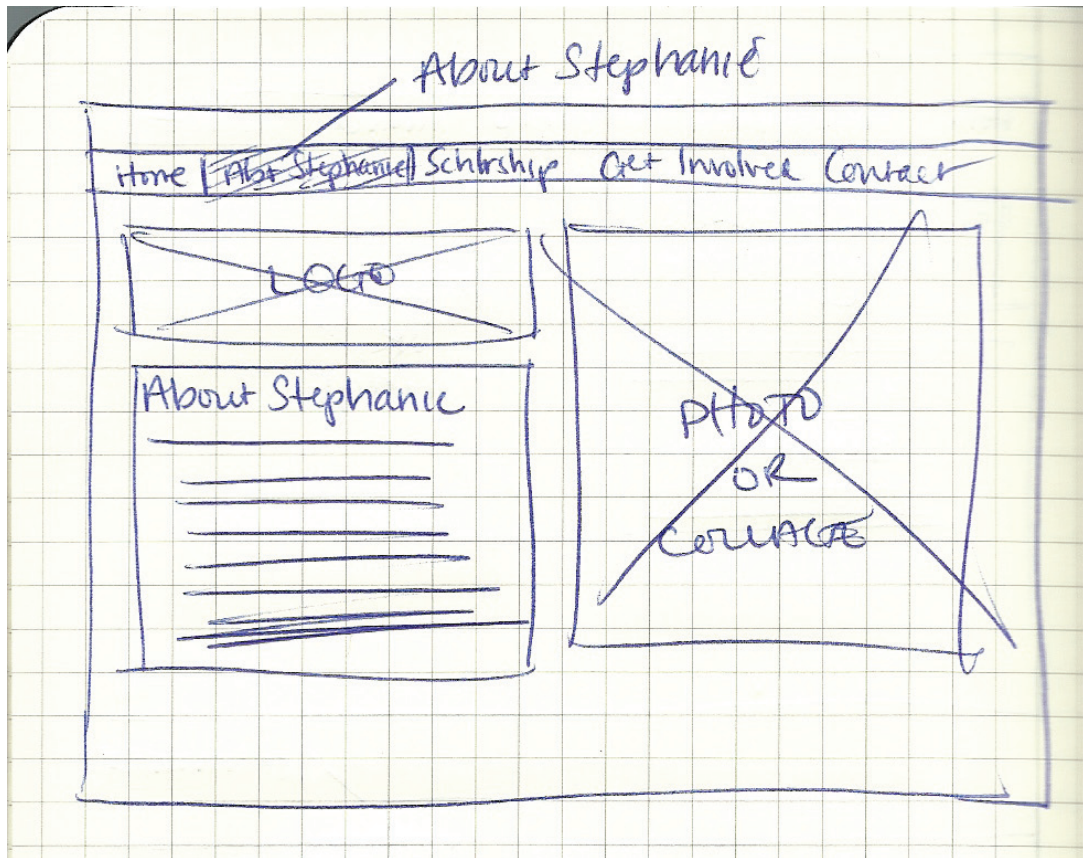 About Stephanie
Home Abt Stephanie Schlrship Get Involved Contact
LOGO
About Stephanie
PHOTO
OR
COLLAGE